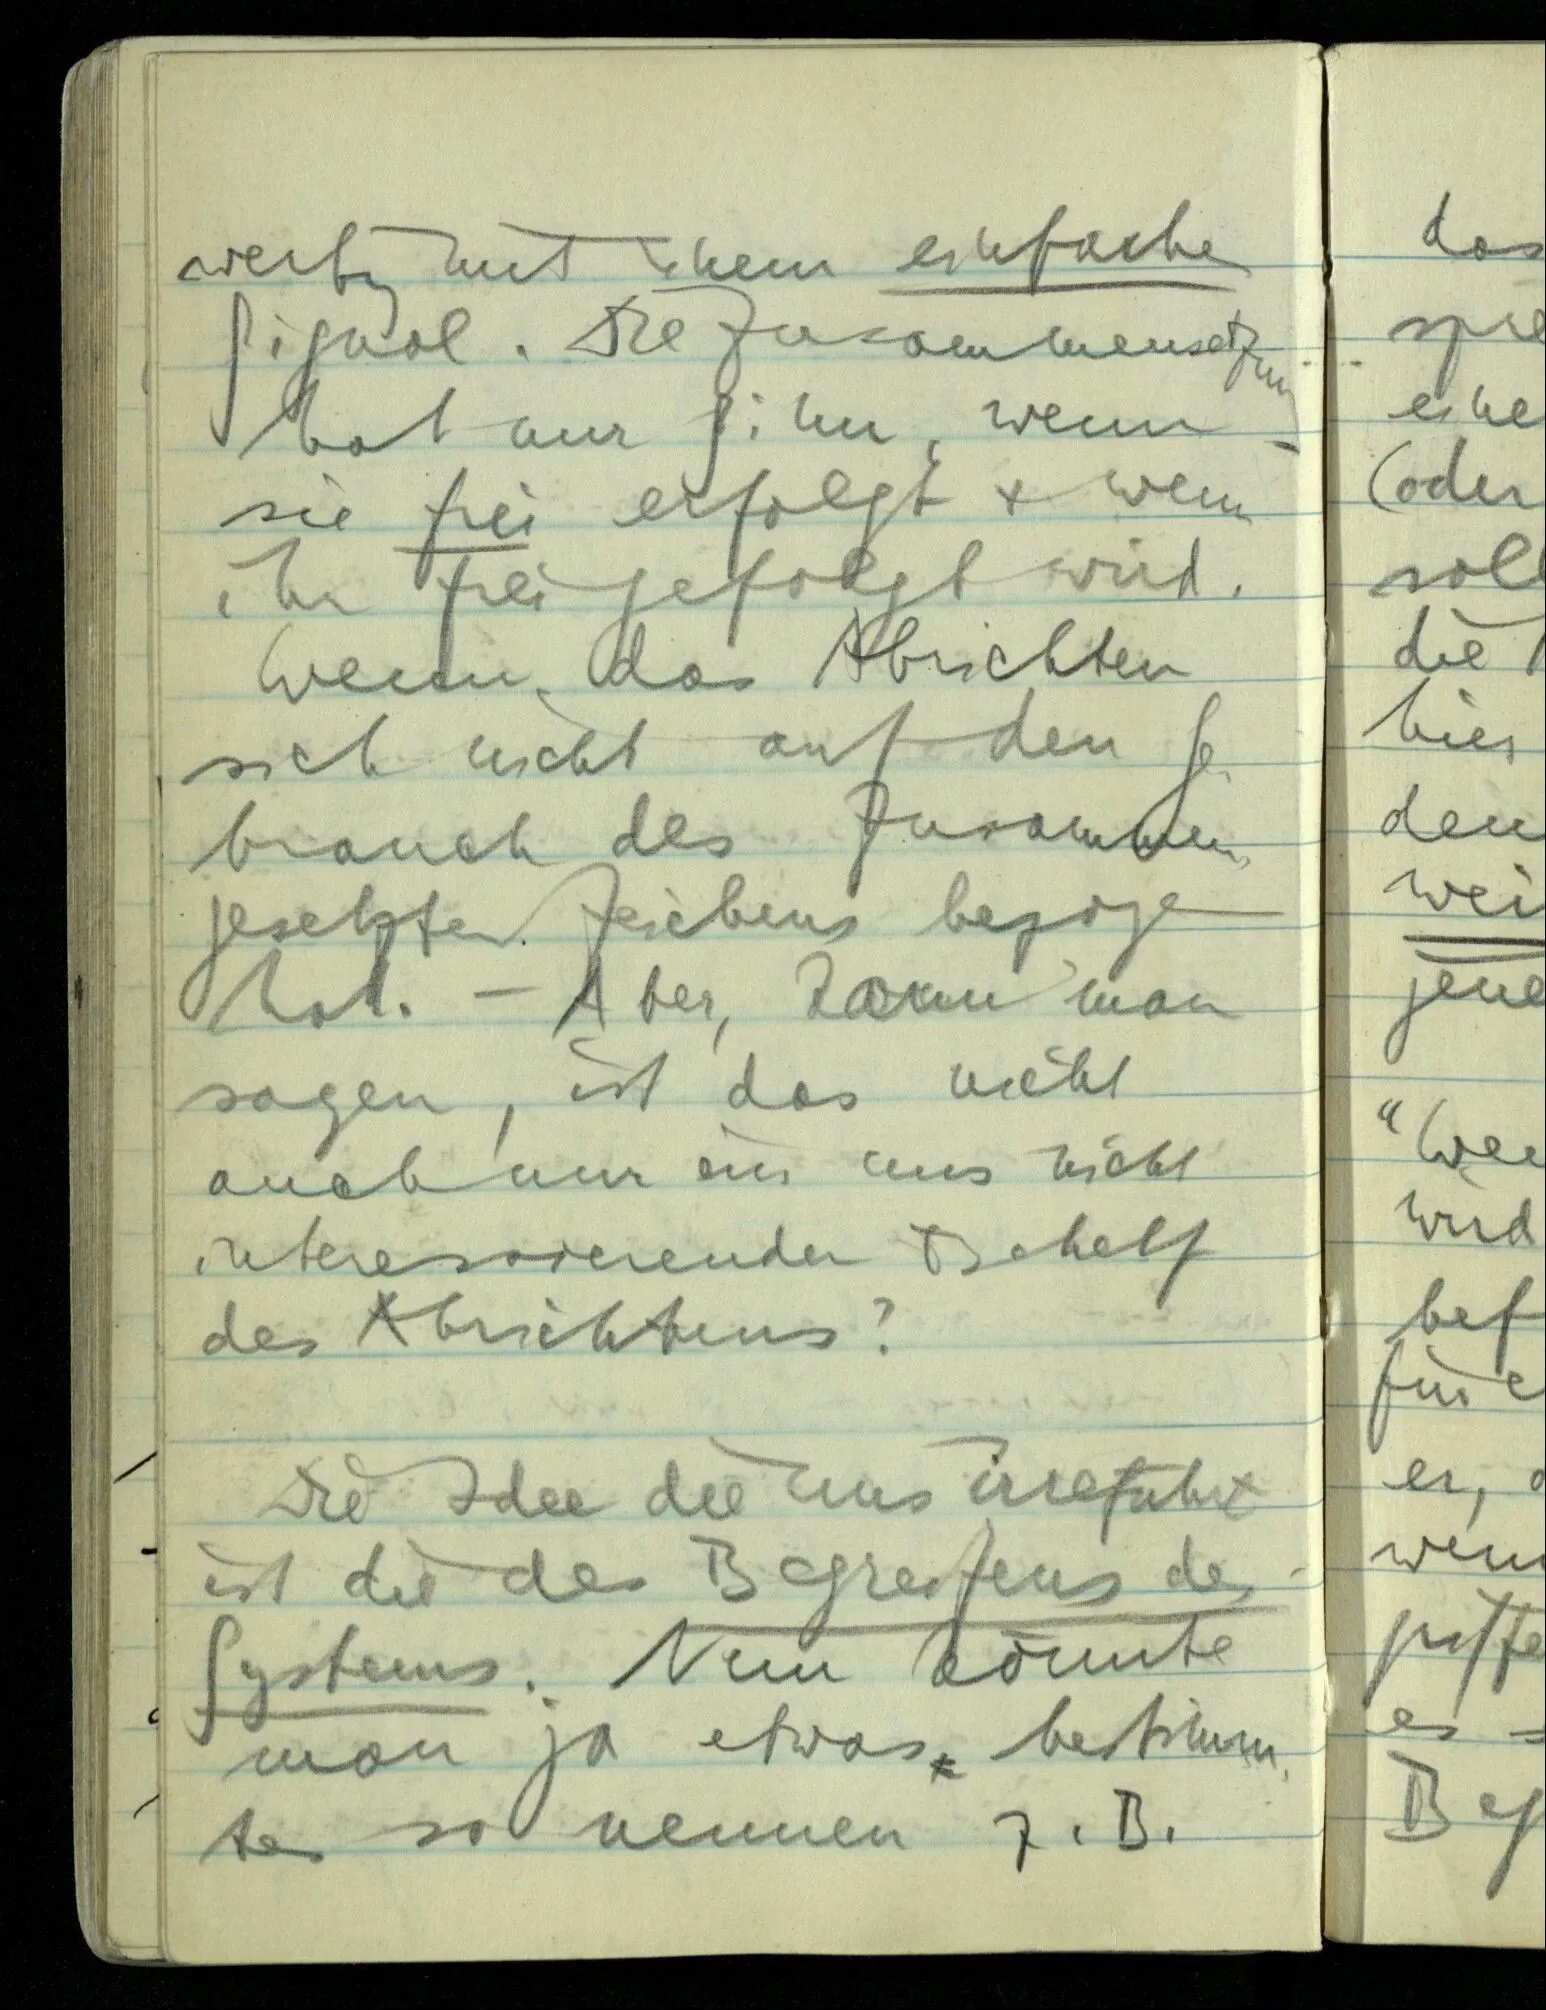 wertig mit einem einfachen
Signal. Die Zusammensetzung
hat nur Sinn, wenn
sie frei erfolgt + wenn
ihr frei gefolgt wird.
Wenn das Abrichten
sich nicht auf den Ge-
brauch des zusammen-
gesetzten Zeichens bezogen
hat. – Aber, kann man
sagen, ist das nicht
auch nur ein uns nicht
interessierender Behelf
des Abrichtens?
Die Idee die uns irreführt
ist die des Begreifens des
Systems. Nun könnte
man ja etwas bestimm-
tes so nennen z.B.
das
spre
eine
(oder
soll
die
hier
den
wei
jene
"Wen
wird
bef
für e
er,
wenn
es s
Beg